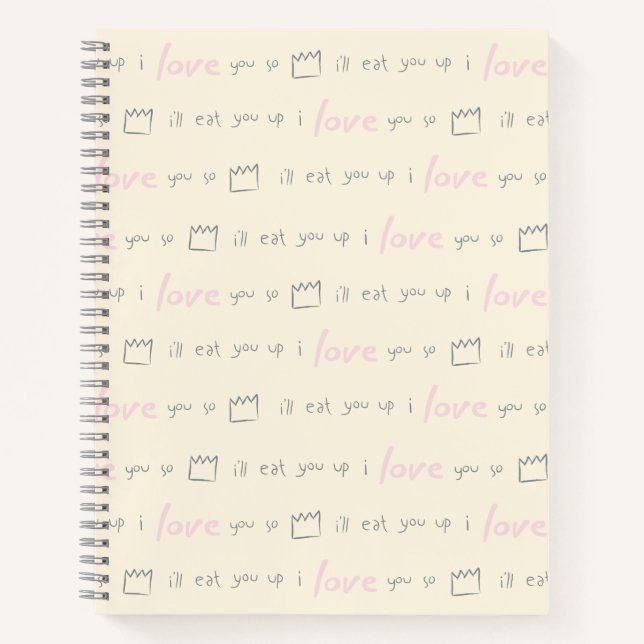 up i love you so i'll eat you up i love
so i'll eat you up i love you so i'll eat
love you so i'll eat you up i love you so
e you so i'll eat you up i love you so
up i love you so i'll eat you up i love
so i'll eat you up i love you so i'll eat
love you so i'll eat you up i love you so
e you so i'll eat you up i love you so
up i love you so i'll eat you up i love
so i'll eat you up i love you so i'll eat